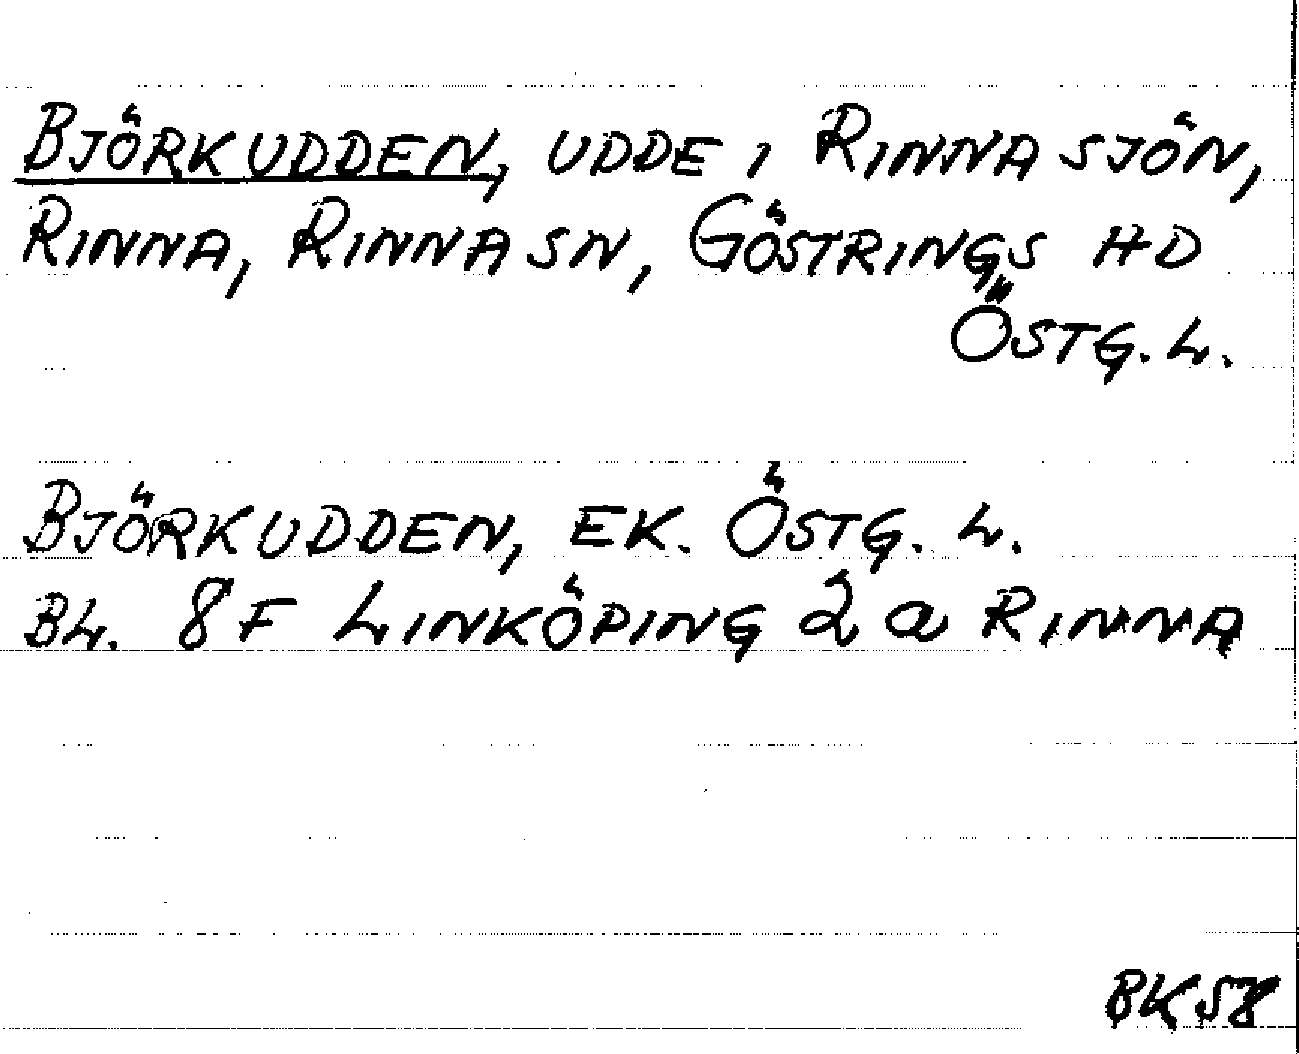 BJÖRKUDDEN, UDDE I RINNASJÖN,
RINNA, RINNA SN, GÖSTRINGS HD
ÖSTG. L.
BJÖRKUDDEN, EK. ÖSTG. L.
BL. 8F LINKÖPING 2 a RINNA
BK58